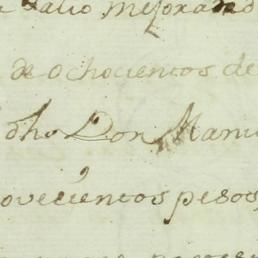 salio mejorado
de ochocientos de
dho Don Manu
ovecientos pesos